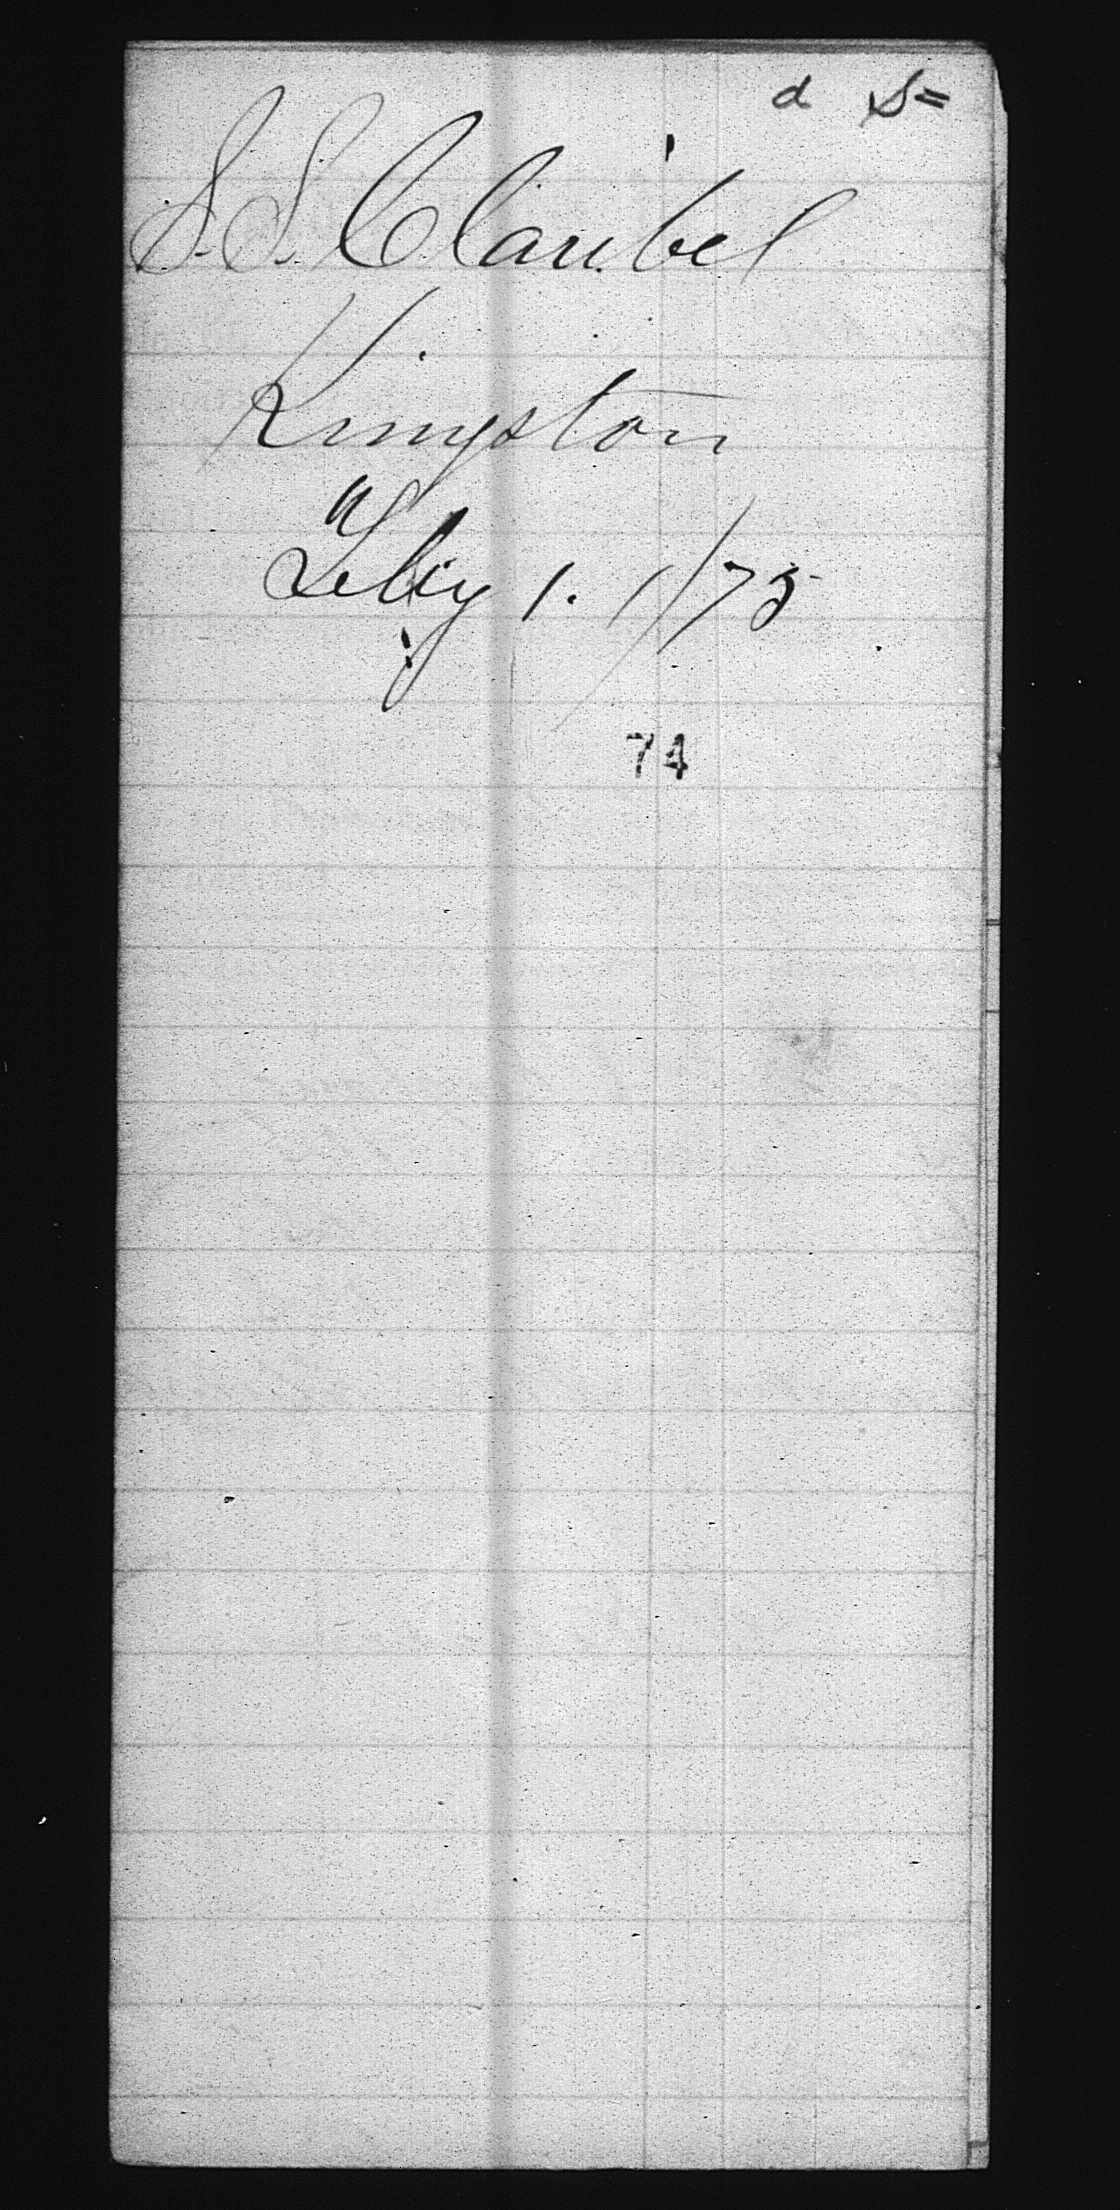 d S=
S.S. Claribel
Kingston
Feby 1. 1/75
74